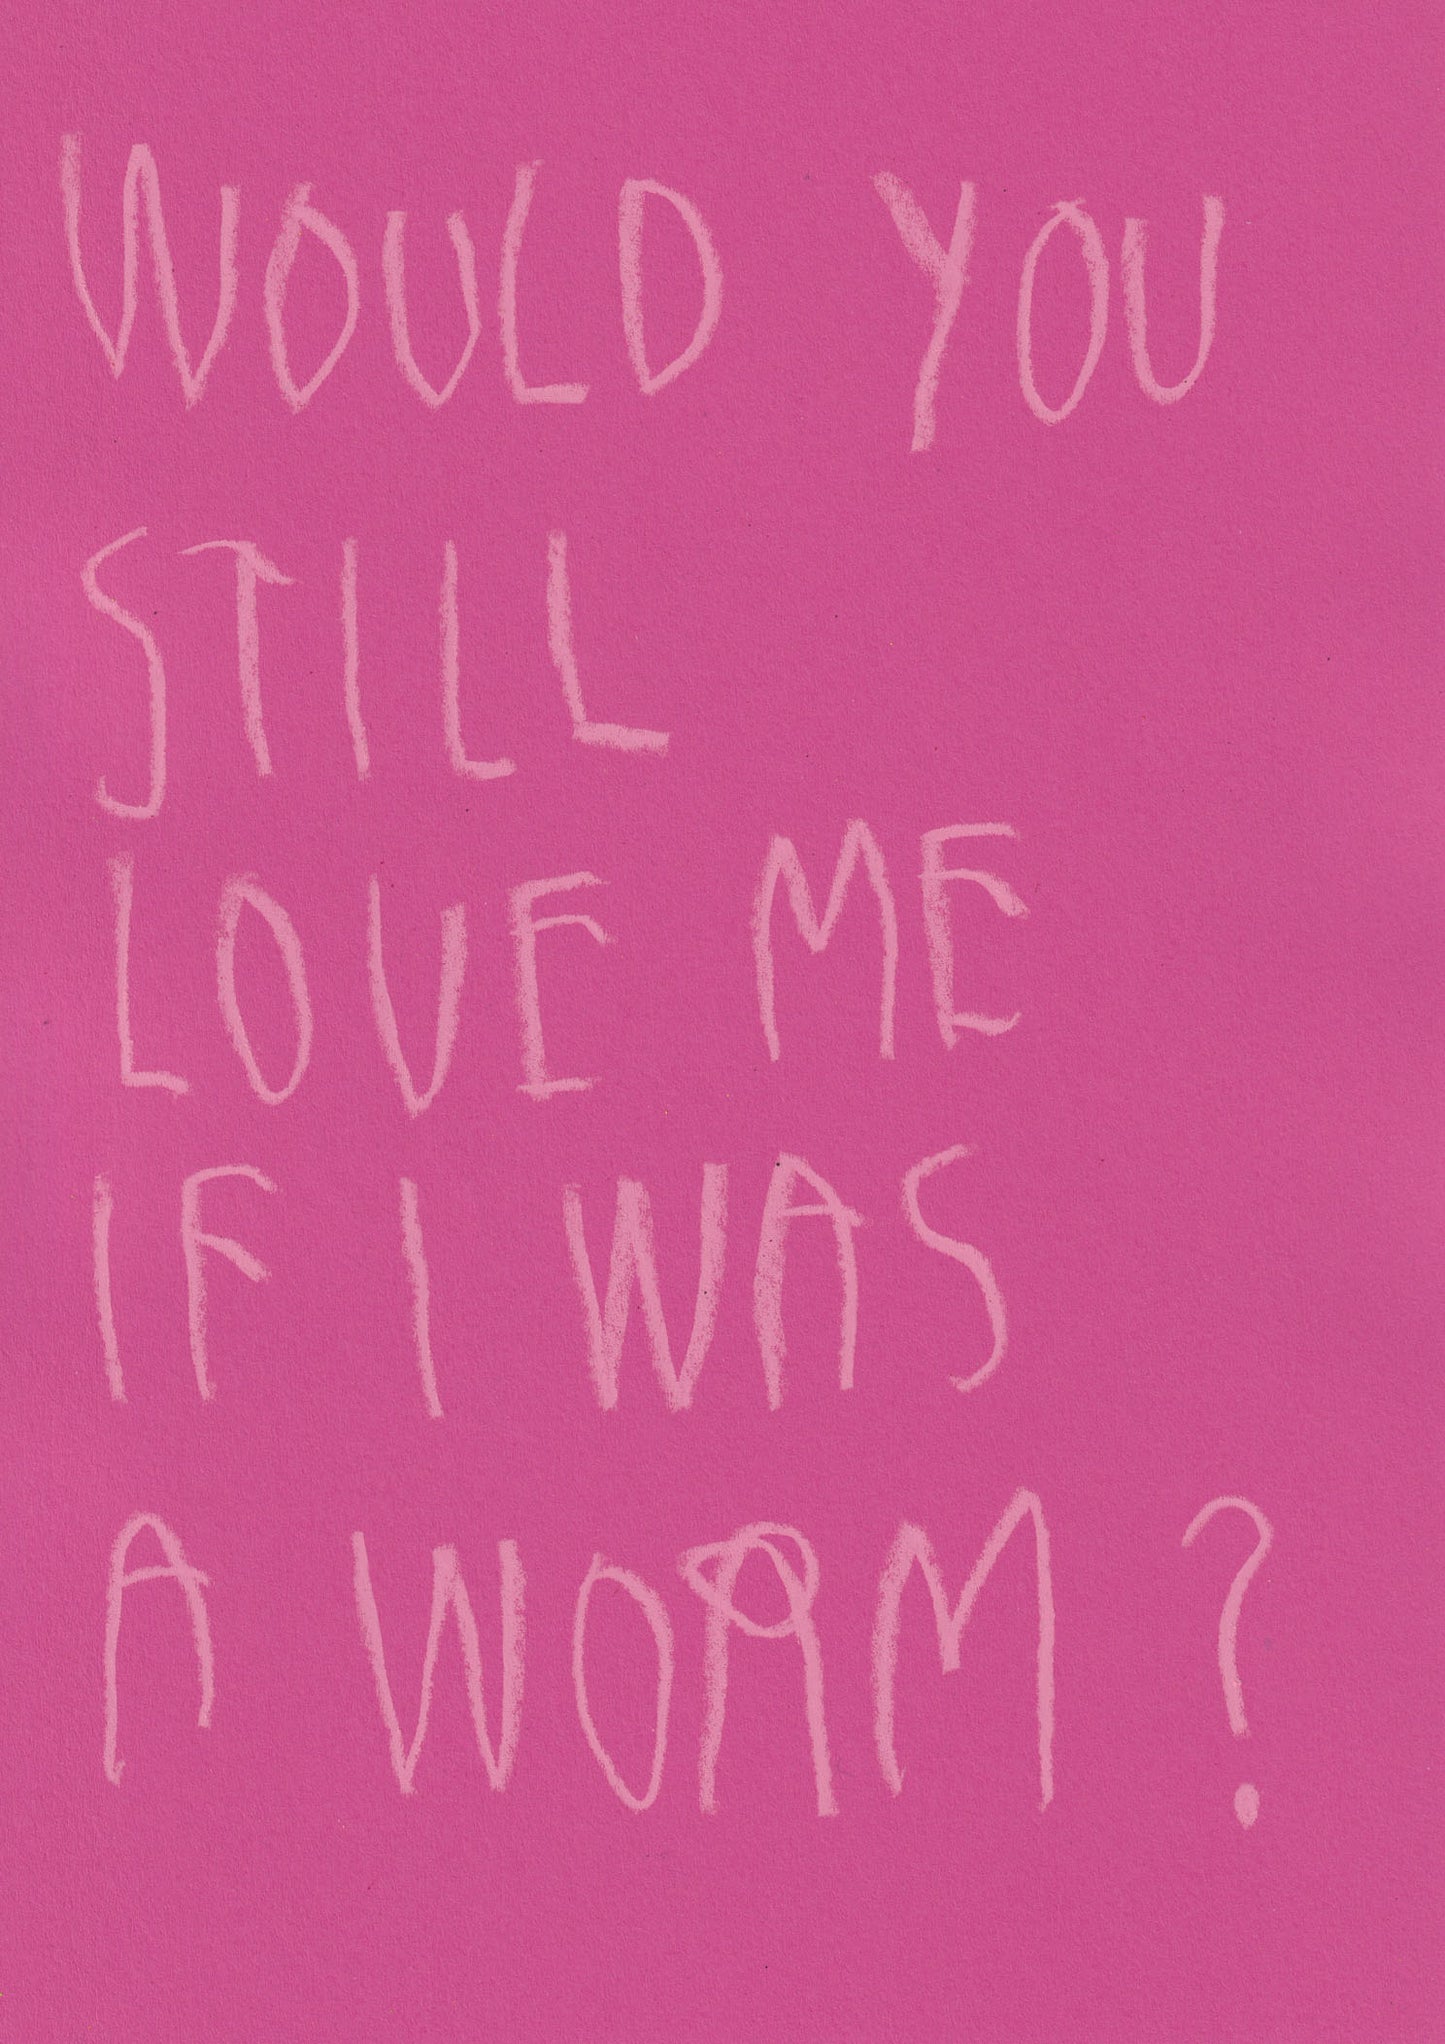 WOULD YOU
STILL
LOVE ME
IF I WAS
A WORM?